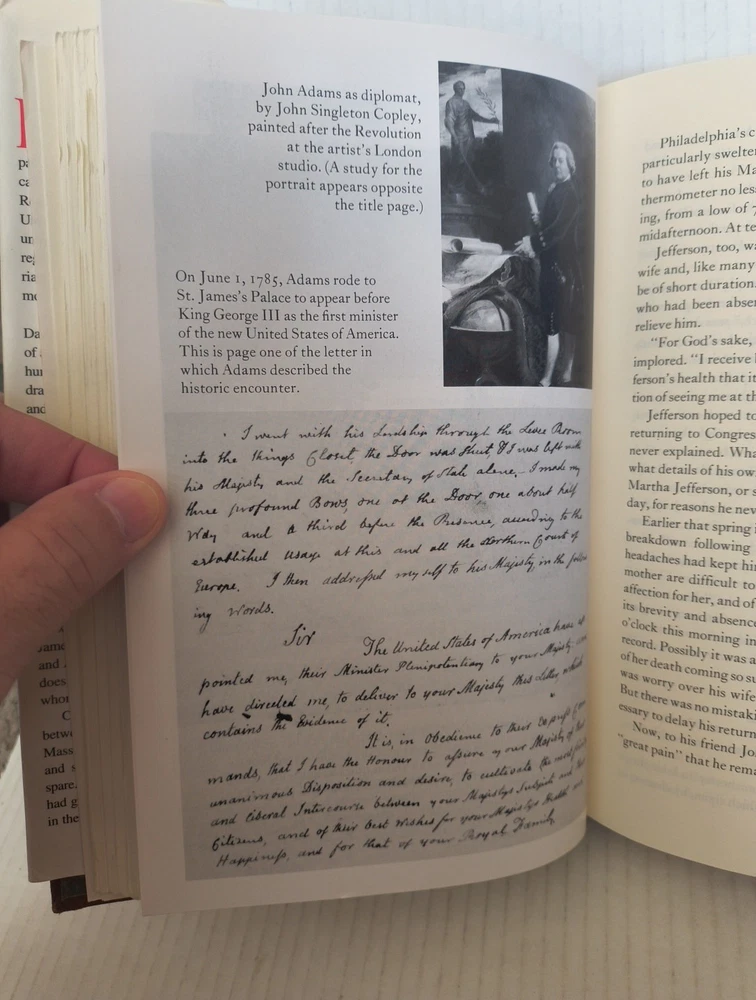 John Adams as diplomat,
by John Singleton Copley,
painted after the Revolution
at the artist's London
studio. (A study for the
portrait appears opposite
the title page.)
On June 1, 1785, Adams rode to
St. James's Palace to appear before
King George III as the first minister
of the new United States of America.
This is page one of the letter in
which Adams described the
historic encounter.
I went with his Lordship through the Levee Room
into the Kings Closet, the Door was shut, & I was left with
his Majesty and the Secretary of State alone. I made my
three profound Bows, one at the Door, one about half
Way and a third before the Presence, according to the
established usage at this and all the Northern Courts of
Europe. I then addressed myself to his Majesty, in the follow
ing Words.
Sir
The United States of America have ap
pointed me, their Minister Plenipotentiary to your Majesty
have directed me, to deliver to your Majesty this Letter, which
contains the Evidence of it.
It is, in Obedience to their express Com
mands, that I have the Honour to assure your Majesty of their
unanimous Disposition and desire, to cultivate the most
and liberal Intercourse between your Majestys Subjects and their
Citizens, and of their best Wishes for your Majestys Health and
Happiness, and for that of your Royal Family
Philadelphia's c
particularly swelte
to have left his Ma
thermometer no les
ing, from a low of 7
midafternoon. At te
Jefferson, too, wa
wife and, like many
be of short duration.
who had been abse
relieve him.
"For God's sake,
implored. "I receive
ferson's health that it
tion of seeing me at th
Jefferson hoped to
returning to Congres
never explained. Wha
what details of his ow
Martha Jefferson, or s
day, for reasons he nev
Earlier that spring
breakdown following
headaches had kept hi
mother are difficult to
affection for her, and of
its brevity and absence
o'clock this morning in
record. Possibly it was a
of her death coming so su
was worry over his wife
But there was no mistaki
essary to delay his return
Now, to his friend Jo
"great pain" that he rema